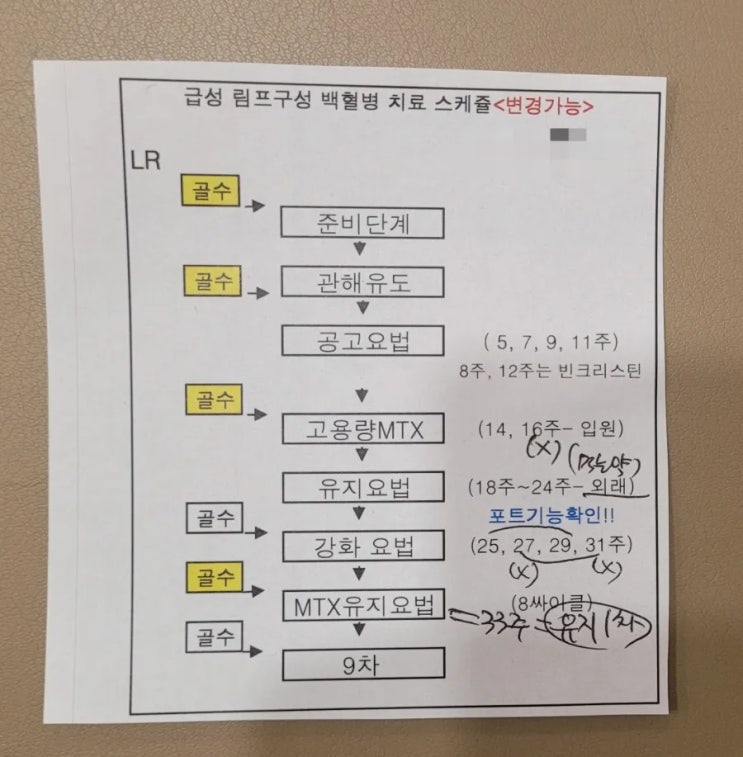 급성 림프구성 백혈병 치료 스케쥴<변경가능>
LR
골수
준비단계
골수
관해유도
공고요법 ( 5, 7, 9, 11주)
8주, 12주는 빈크리스틴
골수
고용량MTX (14, 16주- 입원)
(X)
유지요법 (18주~24주- 외래)
골수 포트기능확인!!
강화 요법 (25, 27, 29, 31주)
(X) (X)
골수
MTX유지요법 (8싸이클)
33주 = 유지 1차
골수
9차